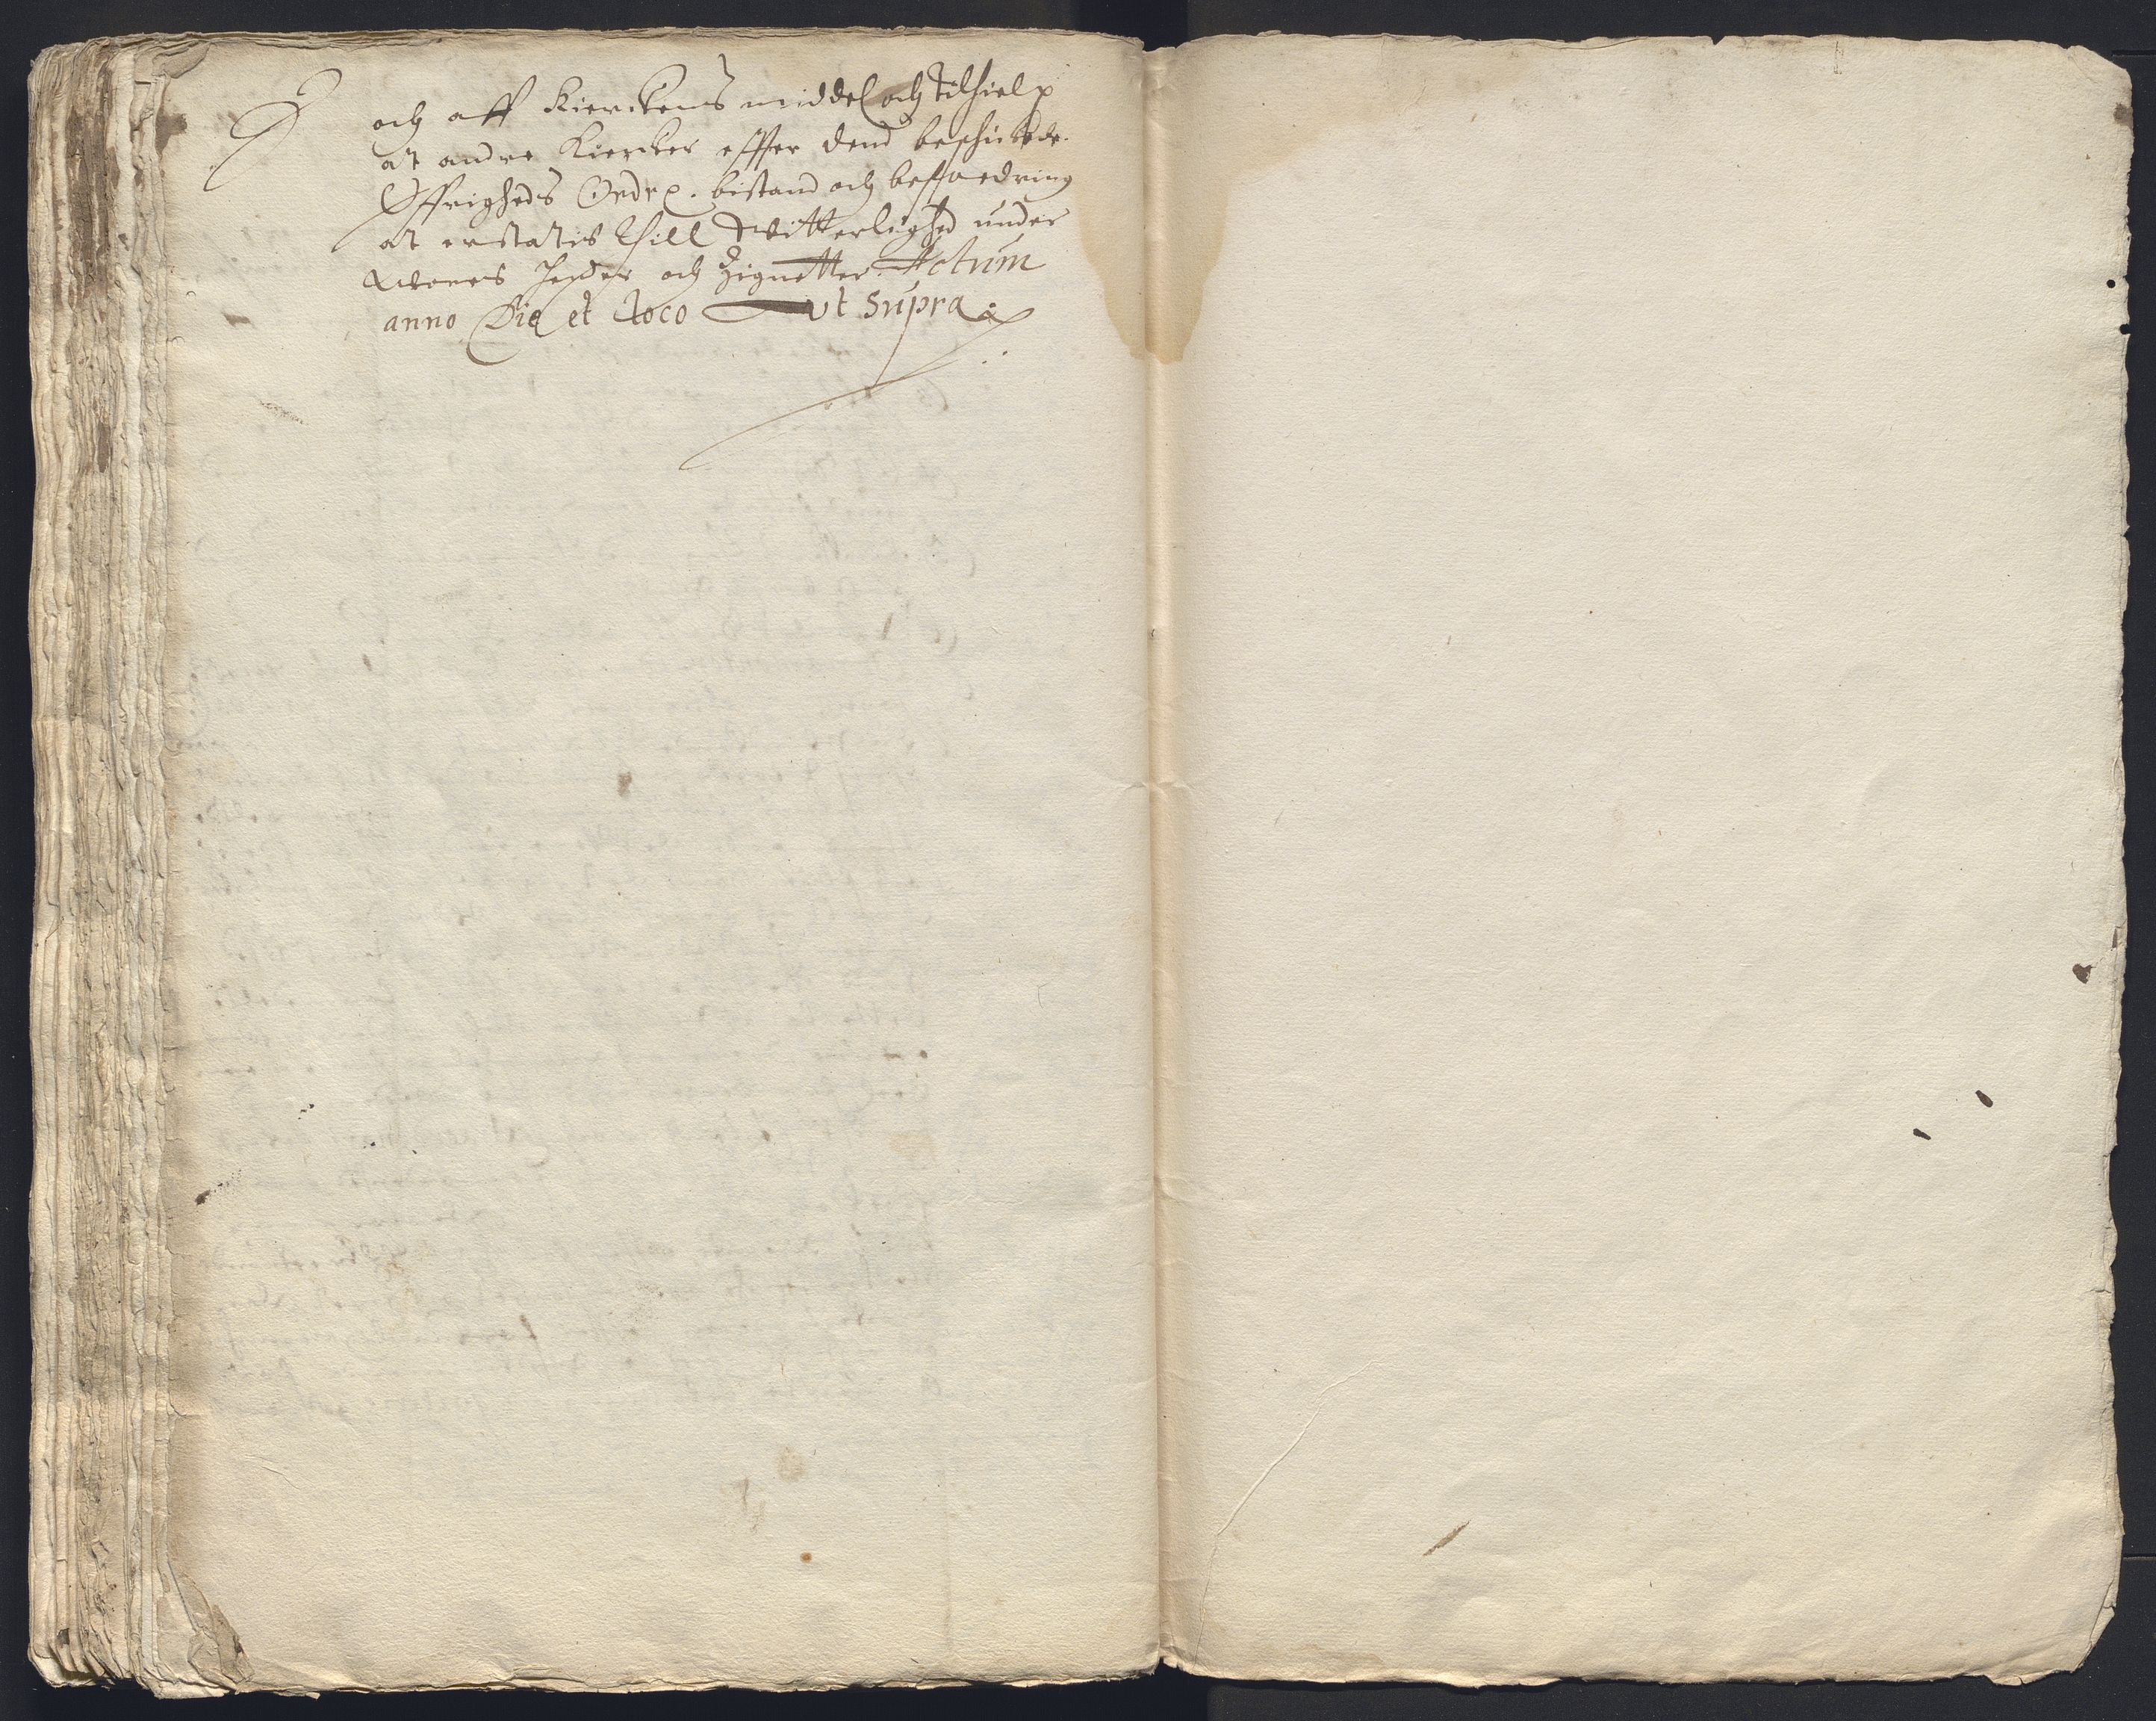 och aff Kierckens middel och tilhielp
at andre Kiercker effter dend beschickede
Øffrigheds Ordre. bistand och beffordring
at erstatis Thill Witterlighed under
Worres hender och Zignetter. Actum
anno Die et Loco ut Supra